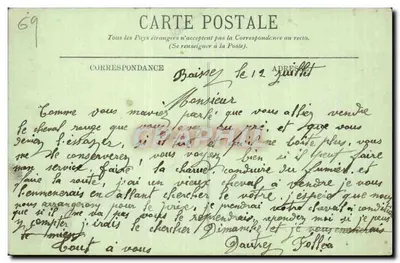 69
CARTE POSTALE
Tous les Pays étrangers n'acceptent pas la Correspondance au recto.
(Se renseigner à la Poste).
CORRESPONDANCE ADRESSE
le 12 juillet
Monsieur
Comme vous maviez parlé que vous alliez vendre
le cheval rouge que et que vous
venez si il ne boite plus, vous
me le conserverez, vous voyez bien si il peut faire
mon service faire la charrue conduire du fumier et
faire la route, j'ai un vieux cheval à vendre je vous
l'emmenerais en allant chercher le votre j'espère que nous
nous arrangerons pour le prix, je prendrai votre cheval à condition
que si il ne va pas vous le reprendrais repondez moi si je peux
y compter j'irais le chercher Dimanche et je vous
Tout à vous